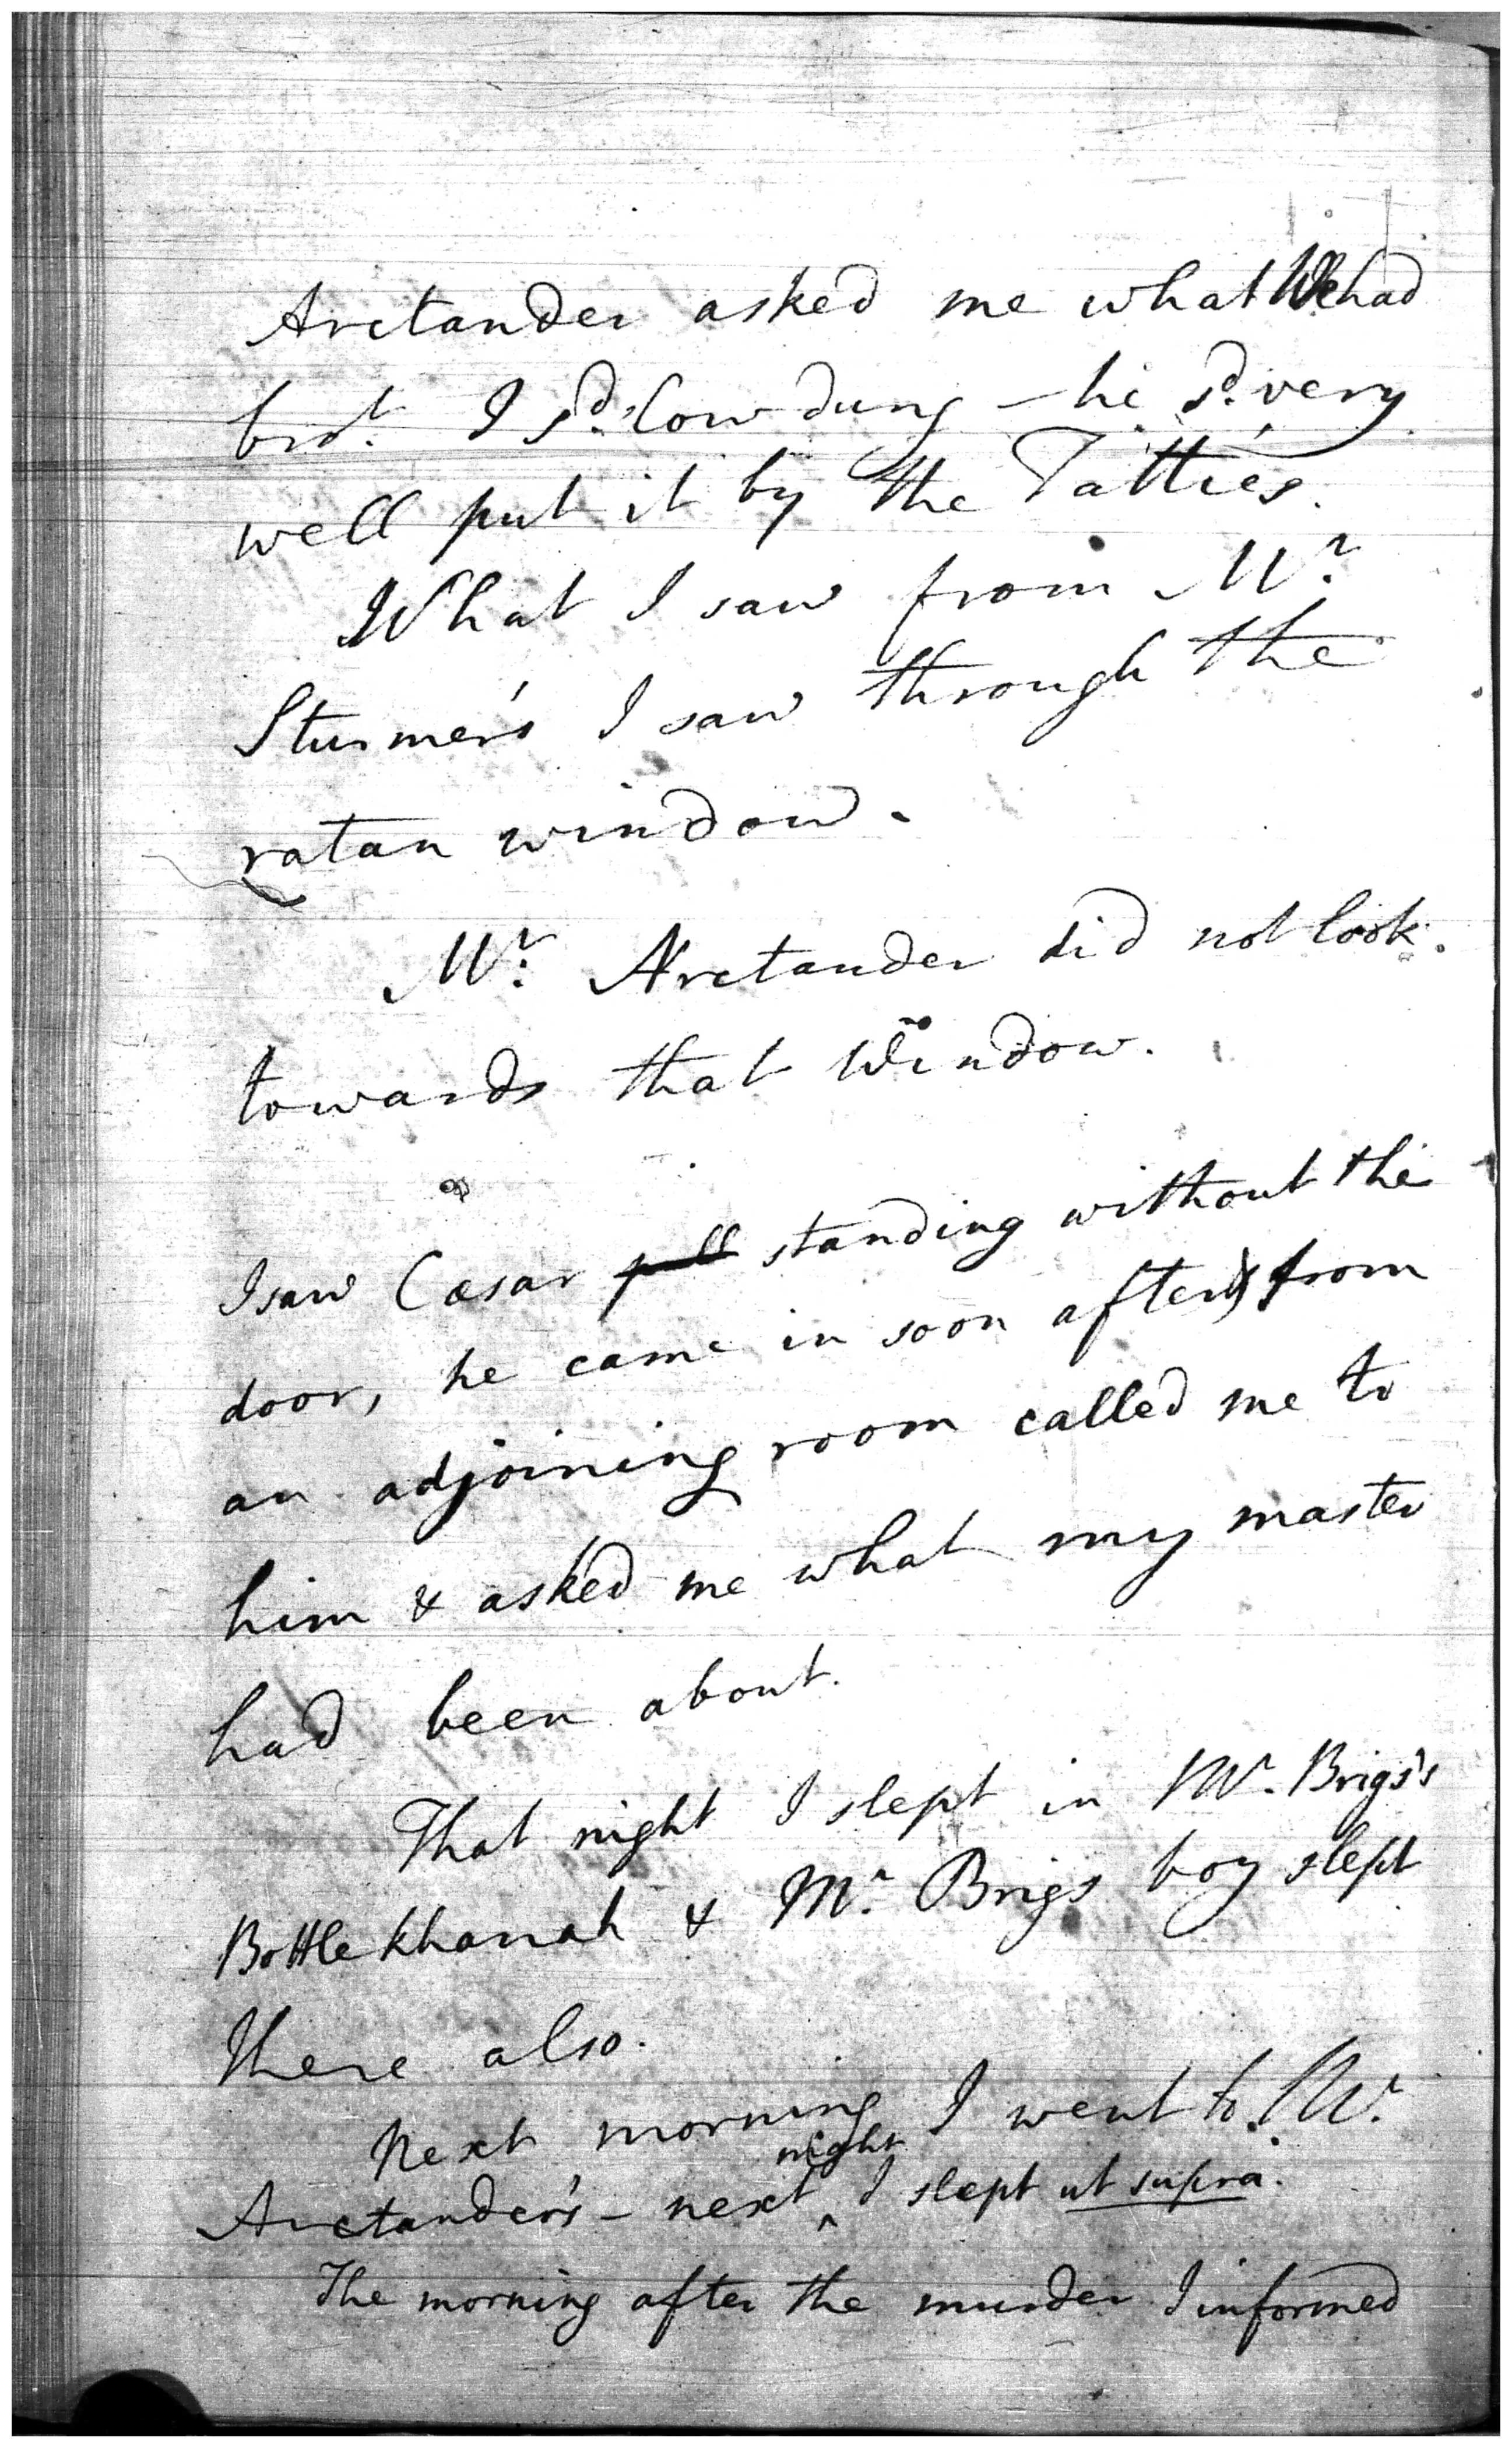 Arctander asked me what We had
brot. I sd. Cow dung – he sd. very
well put it by the Tatties.
What I saw from Mr.
Sturmer's I saw through the
ratan window.
Mr. Arctander did not look
towards that Window.
I saw Cæsar pull standing without the
door, he came in soon after, & from
an adjoining room called me to
him & asked me what my master
had been about.
That night I slept in Mr. Brigs's
Bottlekhanah & Mr. Brigs boy slept
there also.
Next morning I went to Mr.
Arctander's – next night I slept ut supra.
The morning after the murder I informed